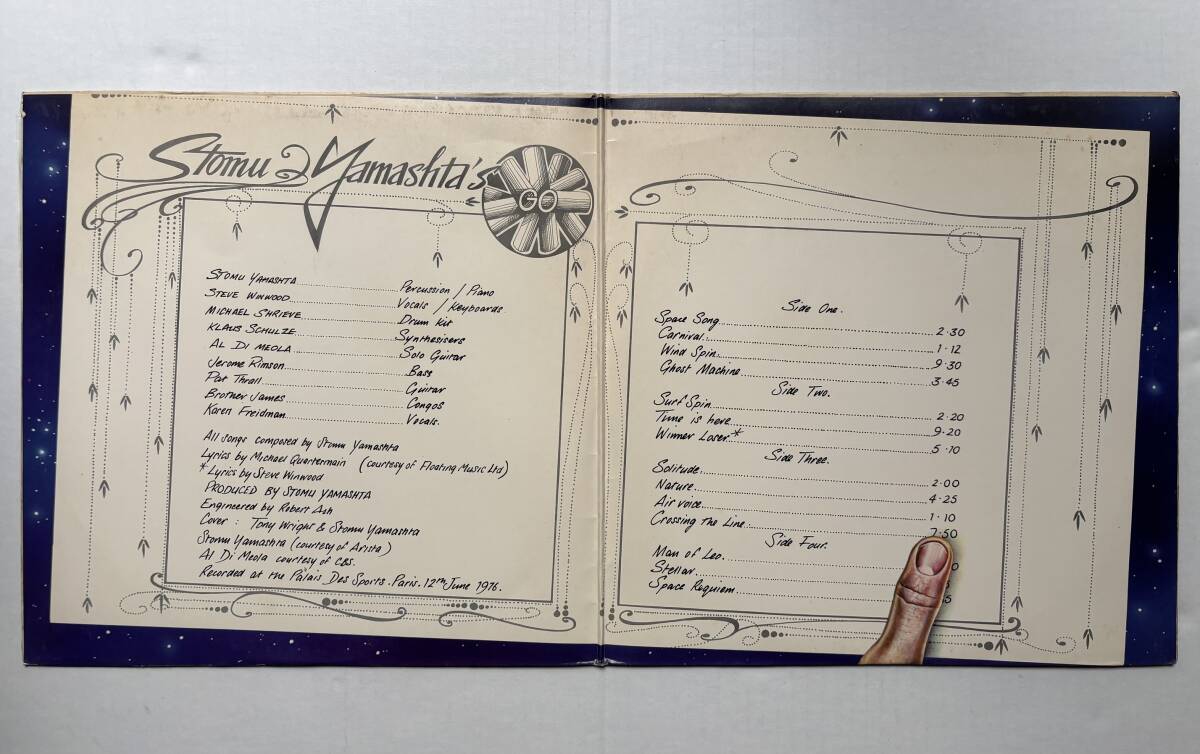 Stomu Yamashta's
GO
STOMU YAMASHTA Percussion / Piano
STEVE WINWOOD Vocals / Keyboards
MICHAEL SHRIEVE Drum Kit
KLAUS SCHULZE Synthesisers
AL DI MEOLA Solo Guitar
Jerome Rimson Bass
Pat Thrall Guitar
Brother James Congos
Karen Freidman Vocals.
All songs composed by Stomu Yamashta
Lyrics by Michael Quartermain (courtesy of Floating Music Ltd)
* Lyrics by Steve Winwood
PRODUCED BY STOMU YAMASHTA
Engineered by Robert Ash
Cover : Tony Wright & Stomu Yamashta
Stomu Yamashta (courtesy of Arista)
Al Di Meola courtesy of CBS.
Recorded at the Palais Des Sports. Paris. 12th June 1976.
Side One.
Space Song 2·30
Carnival. 1·12
Wind Spin. 9·30
Ghost Machine 3·45
Side Two.
Surf Spin 2·20
Time is here 9·20
Winner Loser* 5·10
Side Three.
Solitude. 2·00
Nature 4·25
Air voice 1·10
Crossing the Line 7·50
Side Four.
Man of Leo.
Stellar.
Space Requiem